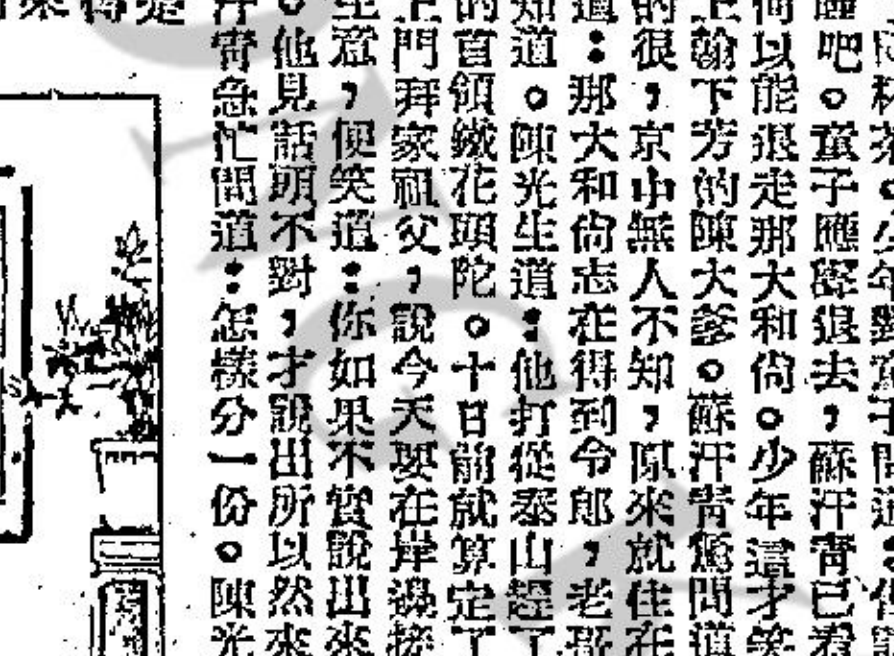 吧。童子應聲退去,蘇汗青已看
何以能退走那大和尚。少年這才笑
上翰下芳的陳大爹。蘇汗青驚問道
的很,京中無人不知,原來就住在
道:那大和尚志在得到令郎,老哥
知道。陳光生道:他打從泰山趕了
的首領鐵花頭陀。十日前就算定了
上門拜家祖父,說今天要在岸邊接
生意,便笑道:你如果不實說出來
。他見話頭不對,才說出所以然來
汗青急忙問道:怎樣分一份。陳光
是
得
來